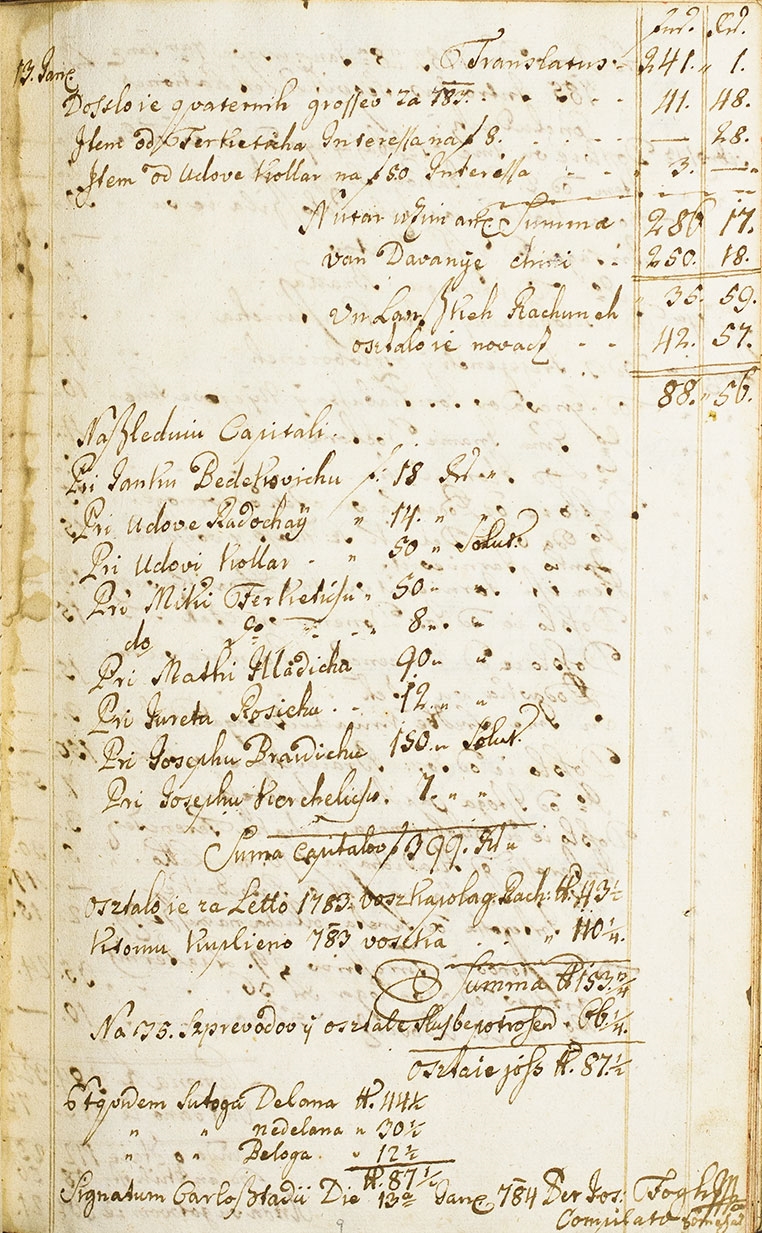 fnr. Xr.
Translatus. 241. „ 1.
13. Janr.
Dosslo ie qvaternih grossev za 783. 41. 48.
Item od Ferketicha Interessa na f 8. — 28.
Item od Udove Kollar na f 50 Interessa „ 3. —
Nutar Summa 286 17.
van Davanye 250. 18.
„ 35. 59.
Rachuneh
osztalo ie novacz 42. 57.
88. „ 56.
Naszledniu Capitali.
Pri Janku Bedekovichu f. 18 Xr „
Pri Udove Radochaÿ „ 14. „ „
Pri Udovi Kollar „ 50 „ Solut.
Pri Miki Ferketichu „ 50 „ „
do do „ 8 „ „
Pri Mathi Mladicha 90 „ „
Pri Jureta Rosichu 12 „ „
Pri Josephu Braidichu 150 „ Solut.
Pri Josephu Korchelichu. 7. „ „
Suma capitalov f 399. Xr „
Osztalo ie za Letto 1783. voszka polag. Rach: ℔. 43½
Ktomu kuplieno 783 voszka „ 110¼.
Summa ℔ 153.¾
Na 75. Szprevodov ÿ osztale Slusbe potrosen. 66¼.
osztaie joss ℔. 87.½
Otqvidem sutoga Delana ℔. 44½
„ „ nedelana „ 30½
„ „ Beloga „ 12½
℔. 87½
Signatum Carlosztadii Die 13a Janr. 784 Per Jos: Fogh
Compilato